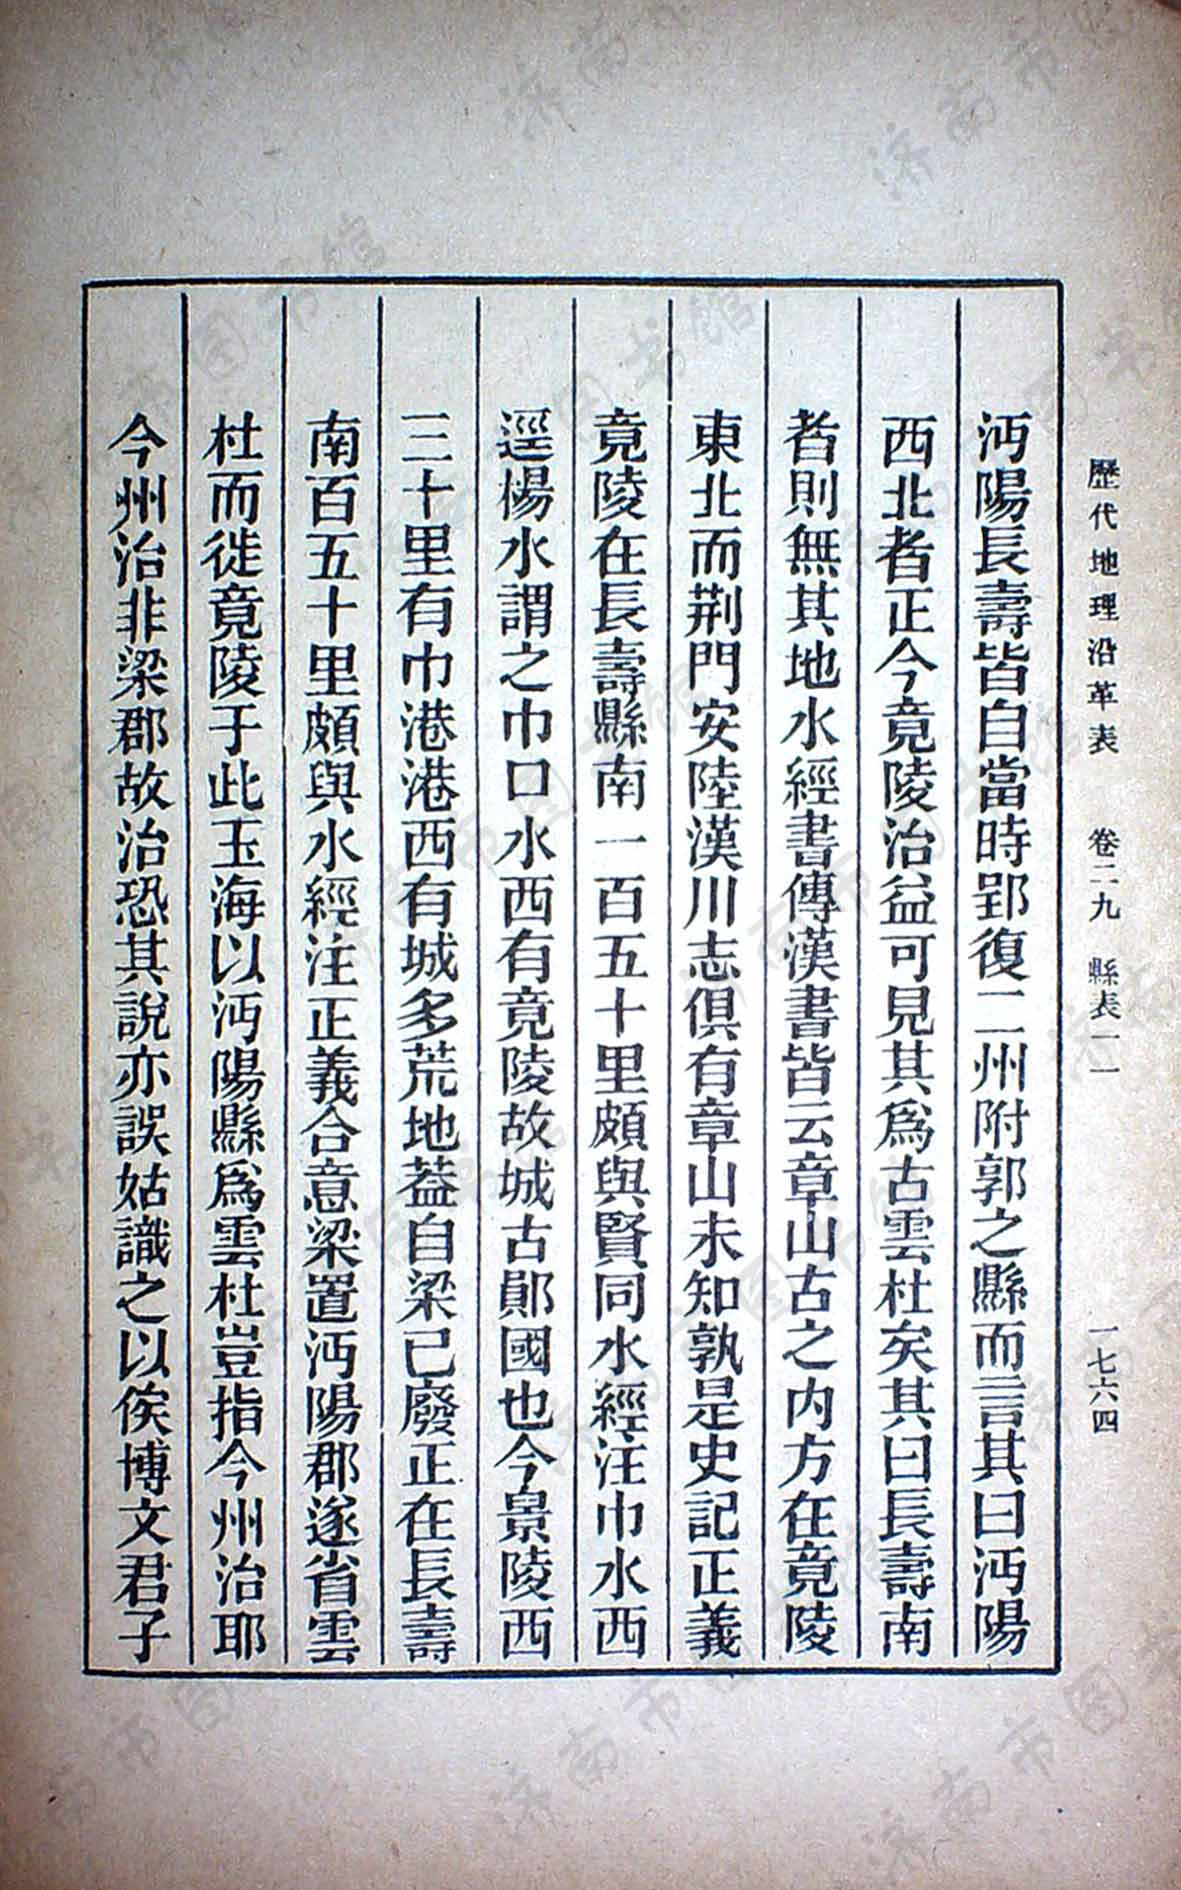 歷代地理沿革表 卷二九 縣表一一 一七六四
沔陽長壽皆自當時郢復二州附郭之縣而言其曰沔陽
西北者正今竟陵治益可見其爲古雲杜矣其曰長壽南
者則無其地水經書傳漢書皆云章山古之内方在竟陵
東北而荆門安陸漢川志俱有章山未知孰是史記正義
竟陵在長壽縣南一百五十里頗與賢同水經注巾水西
逕楊水謂之巾口水西有竟陵故城古鄖國也今景陵西
三十里有巾港港西有城多荒地葢自梁已廢正在長壽
南百五十里頗與水經注正義合意梁置沔陽郡遂省雲
杜而徙竟陵于此玉海以沔陽縣爲雲杜豈指今州治耶
今州治非梁郡故治恐其說亦誤姑識之以俟博文君子